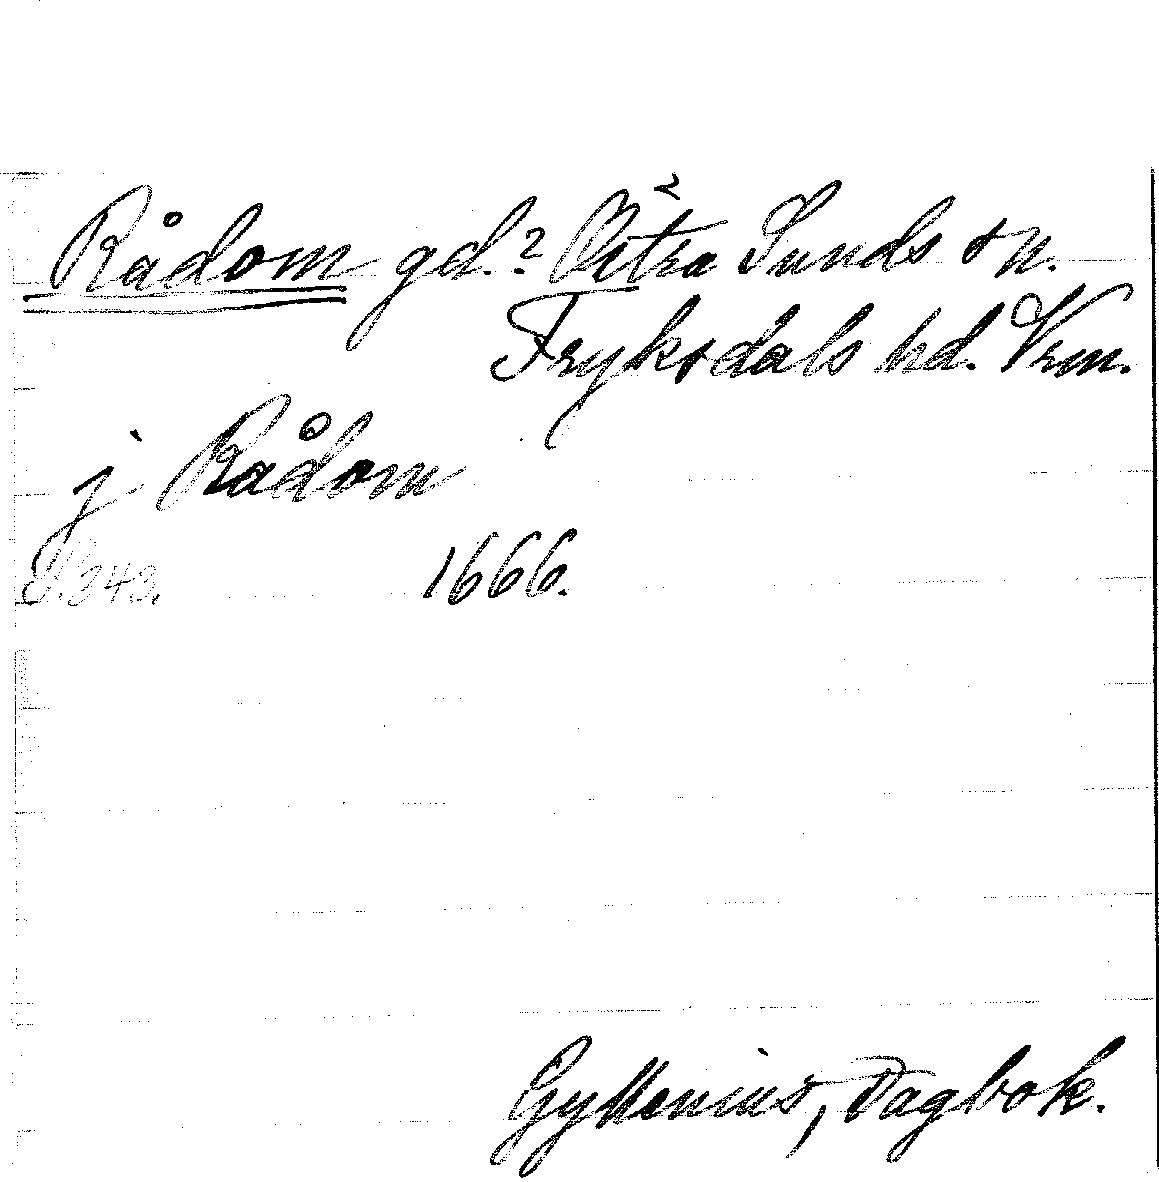 Rådom gd.? Vitra Sunds sn.
Fryksdals hd. Vrm.
j Rådom
S. 343. 1666.
Gyllenius, Dagbok.